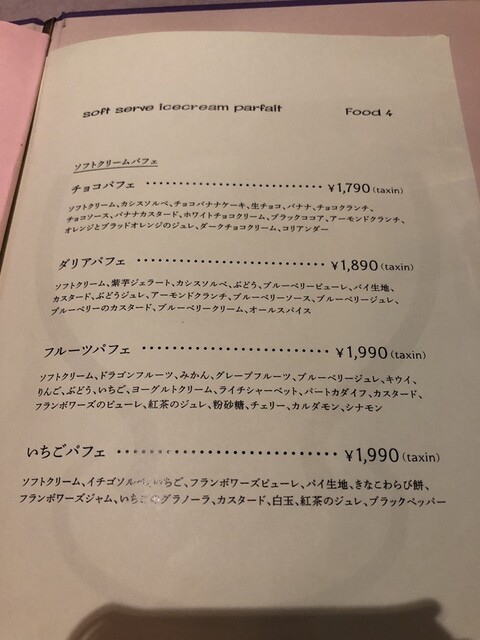 soft serve icecream parfait Food 4
ソフトクリームパフェ
チョコパフェ ・・・・・・・・・・・・・・・・・・・・・・・・ ¥1,790 (taxin)
ソフトクリーム、カシスソルベ、チョコバナナケーキ、生チョコ、バナナ、チョコクランチ、
チョコソース、バナナカスタード、ホワイトチョコクリーム、ブラックココア、アーモンドクランチ、
オレンジとブラッドオレンジのジュレ、ダークチョコクリーム、コリアンダー
ダリアパフェ ・・・・・・・・・・・・・・・・・・・・・・・・ ¥1,890 (taxin)
ソフトクリーム、紫芋ジェラート、カシスソルベ、ぶどう、ブルーベリーピューレ、パイ生地、
カスタード、ぶどうジュレ、アーモンドクランチ、ブルーベリーソース、ブルーベリージュレ、
ブルーベリーのカスタード、ブルーベリークリーム、オールスパイス
フルーツパフェ ・・・・・・・・・・・・・・・・・・・・・・・・ ¥1,990 (taxin)
ソフトクリーム、ドラゴンフルーツ、みかん、グレープフルーツ、ブルーベリージュレ、キウイ、
りんご、ぶどう、いちご、ヨーグルトクリーム、ライチシャーベット、パートカダイフ、カスタード、
フランボワーズのピューレ、紅茶のジュレ、粉砂糖、チェリー、カルダモン、シナモン
いちごパフェ ・・・・・・・・・・・・・・・・・・・・・・・・ ¥1,990 (taxin)
ソフトクリーム、イチゴソルベ、いちご、フランボワーズピューレ、パイ生地、きなこわらび餅、
フランボワーズジャム、いちごのグラノーラ、カスタード、白玉、紅茶のジュレ、ブラックペッパー